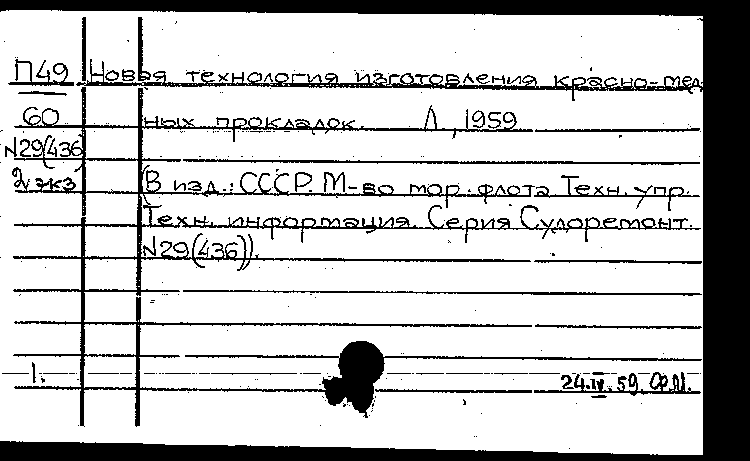 П49 Новая технология изготовления красно-мед-
60 ных прокладок. Л, 1959
N29(436)
2 экз (В изд.: СССР. М-во мор. флота Техн. упр.
Техн. информация. Серия Судоремонт.
N29(436)).
1.
24.IV.59.